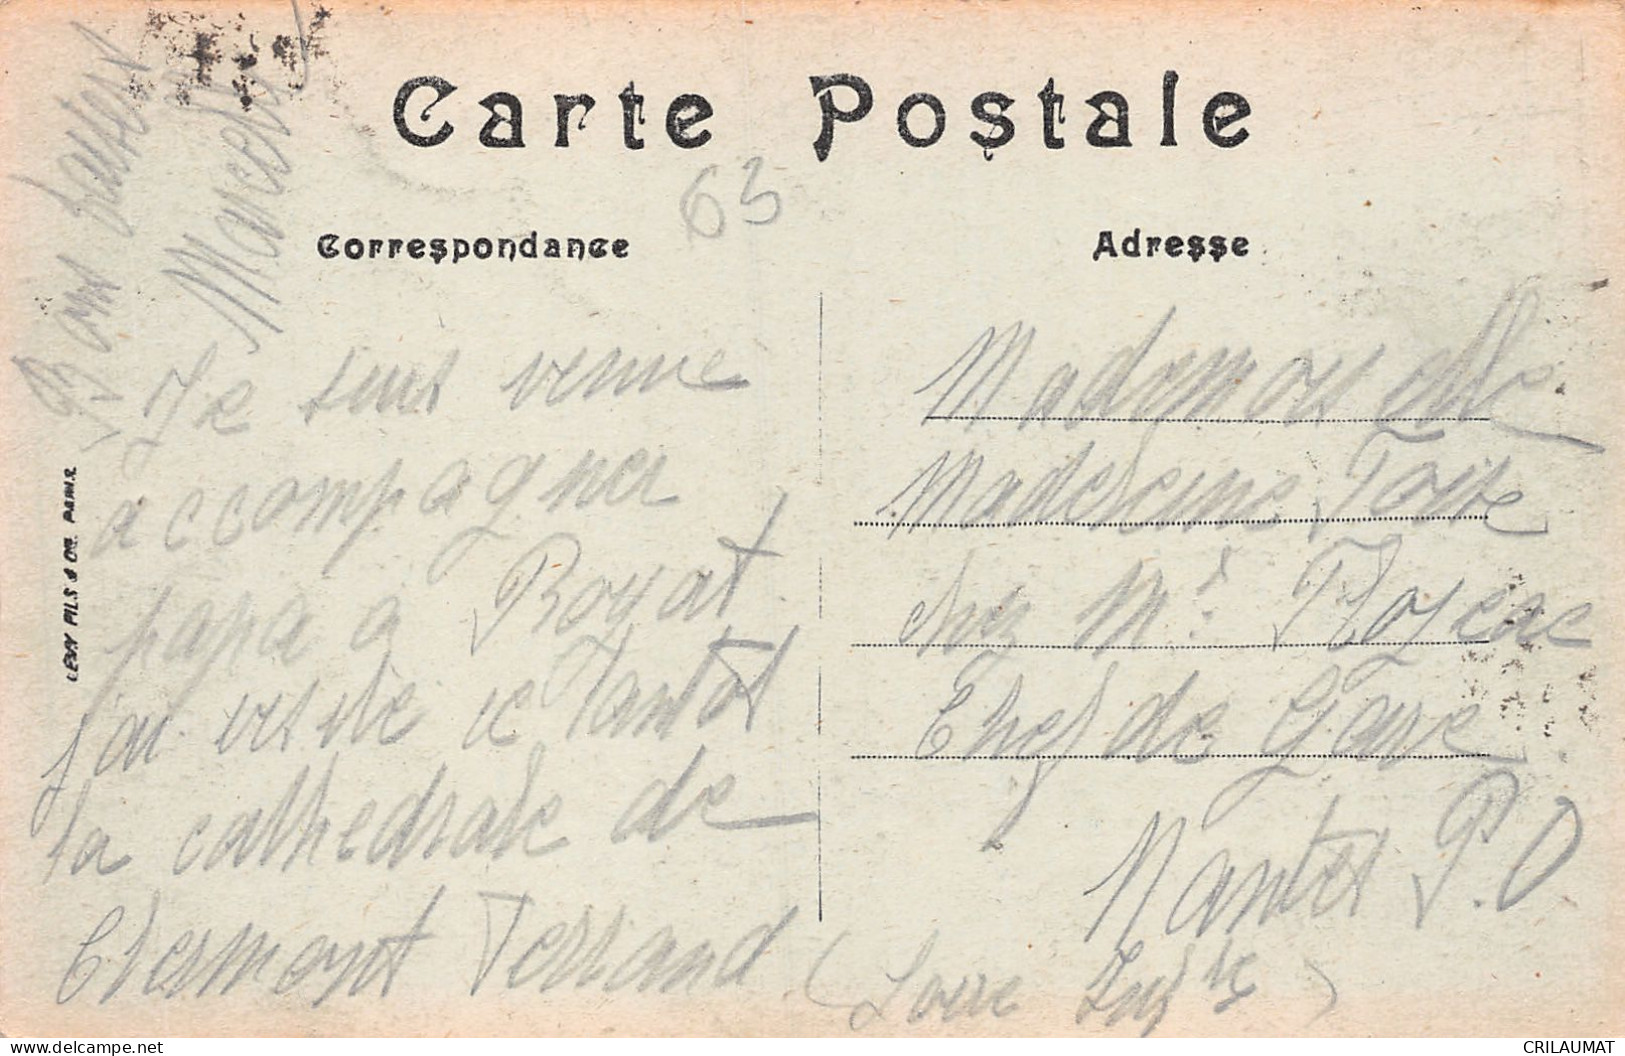 Carte Postale
63
Correspondance
Adresse
Bons baisers
Marcelle
Je suis venue
accompagner
papa a Royat
j'ai visité ce tantôt
la cathedrale de
Clermont Ferrand
Mademoiselle
Madeleine
chez Mr
Chef de Gare
Nantes P.O
(Loire Infre)
LEVY FILS & CIE. PARIS
CRILAUMAT